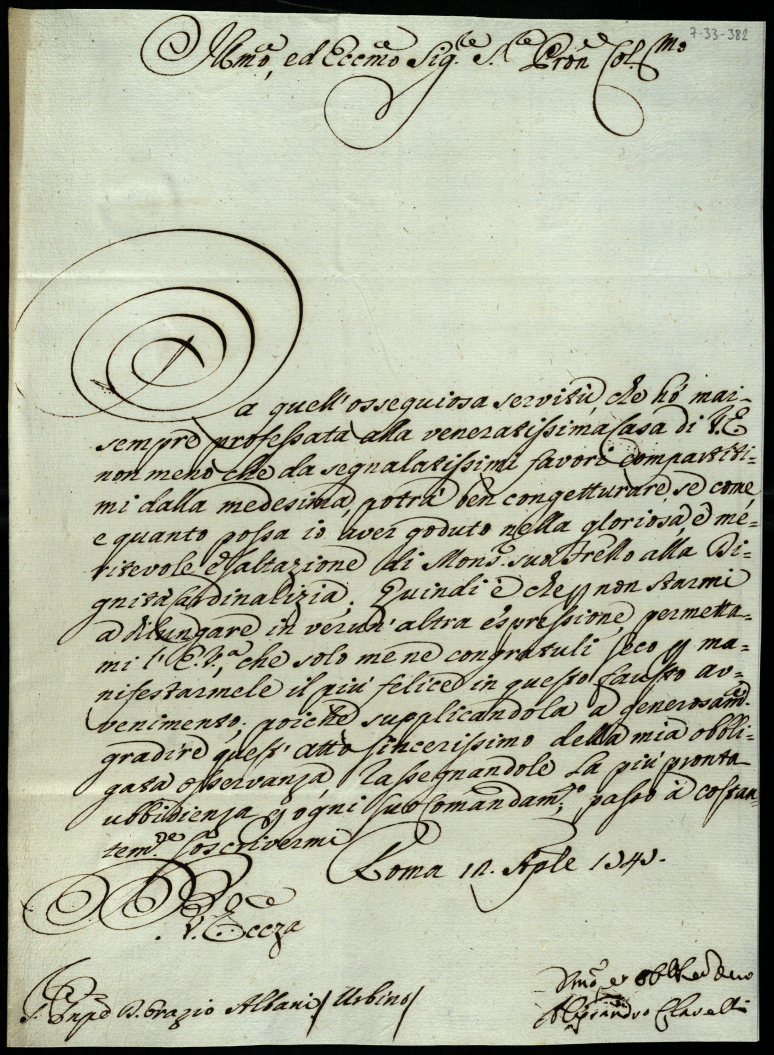 7-33-382
Illmo, ed Eccmo Sigre Sre Prone Colmo
Da quell' ossequiosa servitù, che hò mai-
sempre professata alla veneratissima Casa di V. E
non meno che da segnalatissimi favori compartiti-
mi dalla medesima, potrà ben congetturare, se come,
e quanto possa io aver goduto nella gloriosa, e me-
ritevole esaltazione di Monsr. suo Frello alla Di-
gnità Cardinalizia. Quindi è che p non starmi
a dilungare in verun' altra espressione, permetta-
mi l' E. Va. che solo me ne congratuli seco p ma-
nifestarmele il più felice in questo fausto av-
venimento; poiche supplicandola a generosamte.
gradire quest' atto sincerissimo della mia obbli-
gata osservanza, rassegnandole la più pronta
ubbidienza p ogni suo Comandamto; passo à costan-
temte. soscrivermi
Roma 12. Aple 1747.
D V. Eccza
S. Pnpe D. Orazio Albani / Urbino /
Dmo, ed
Alessandro Clavelli